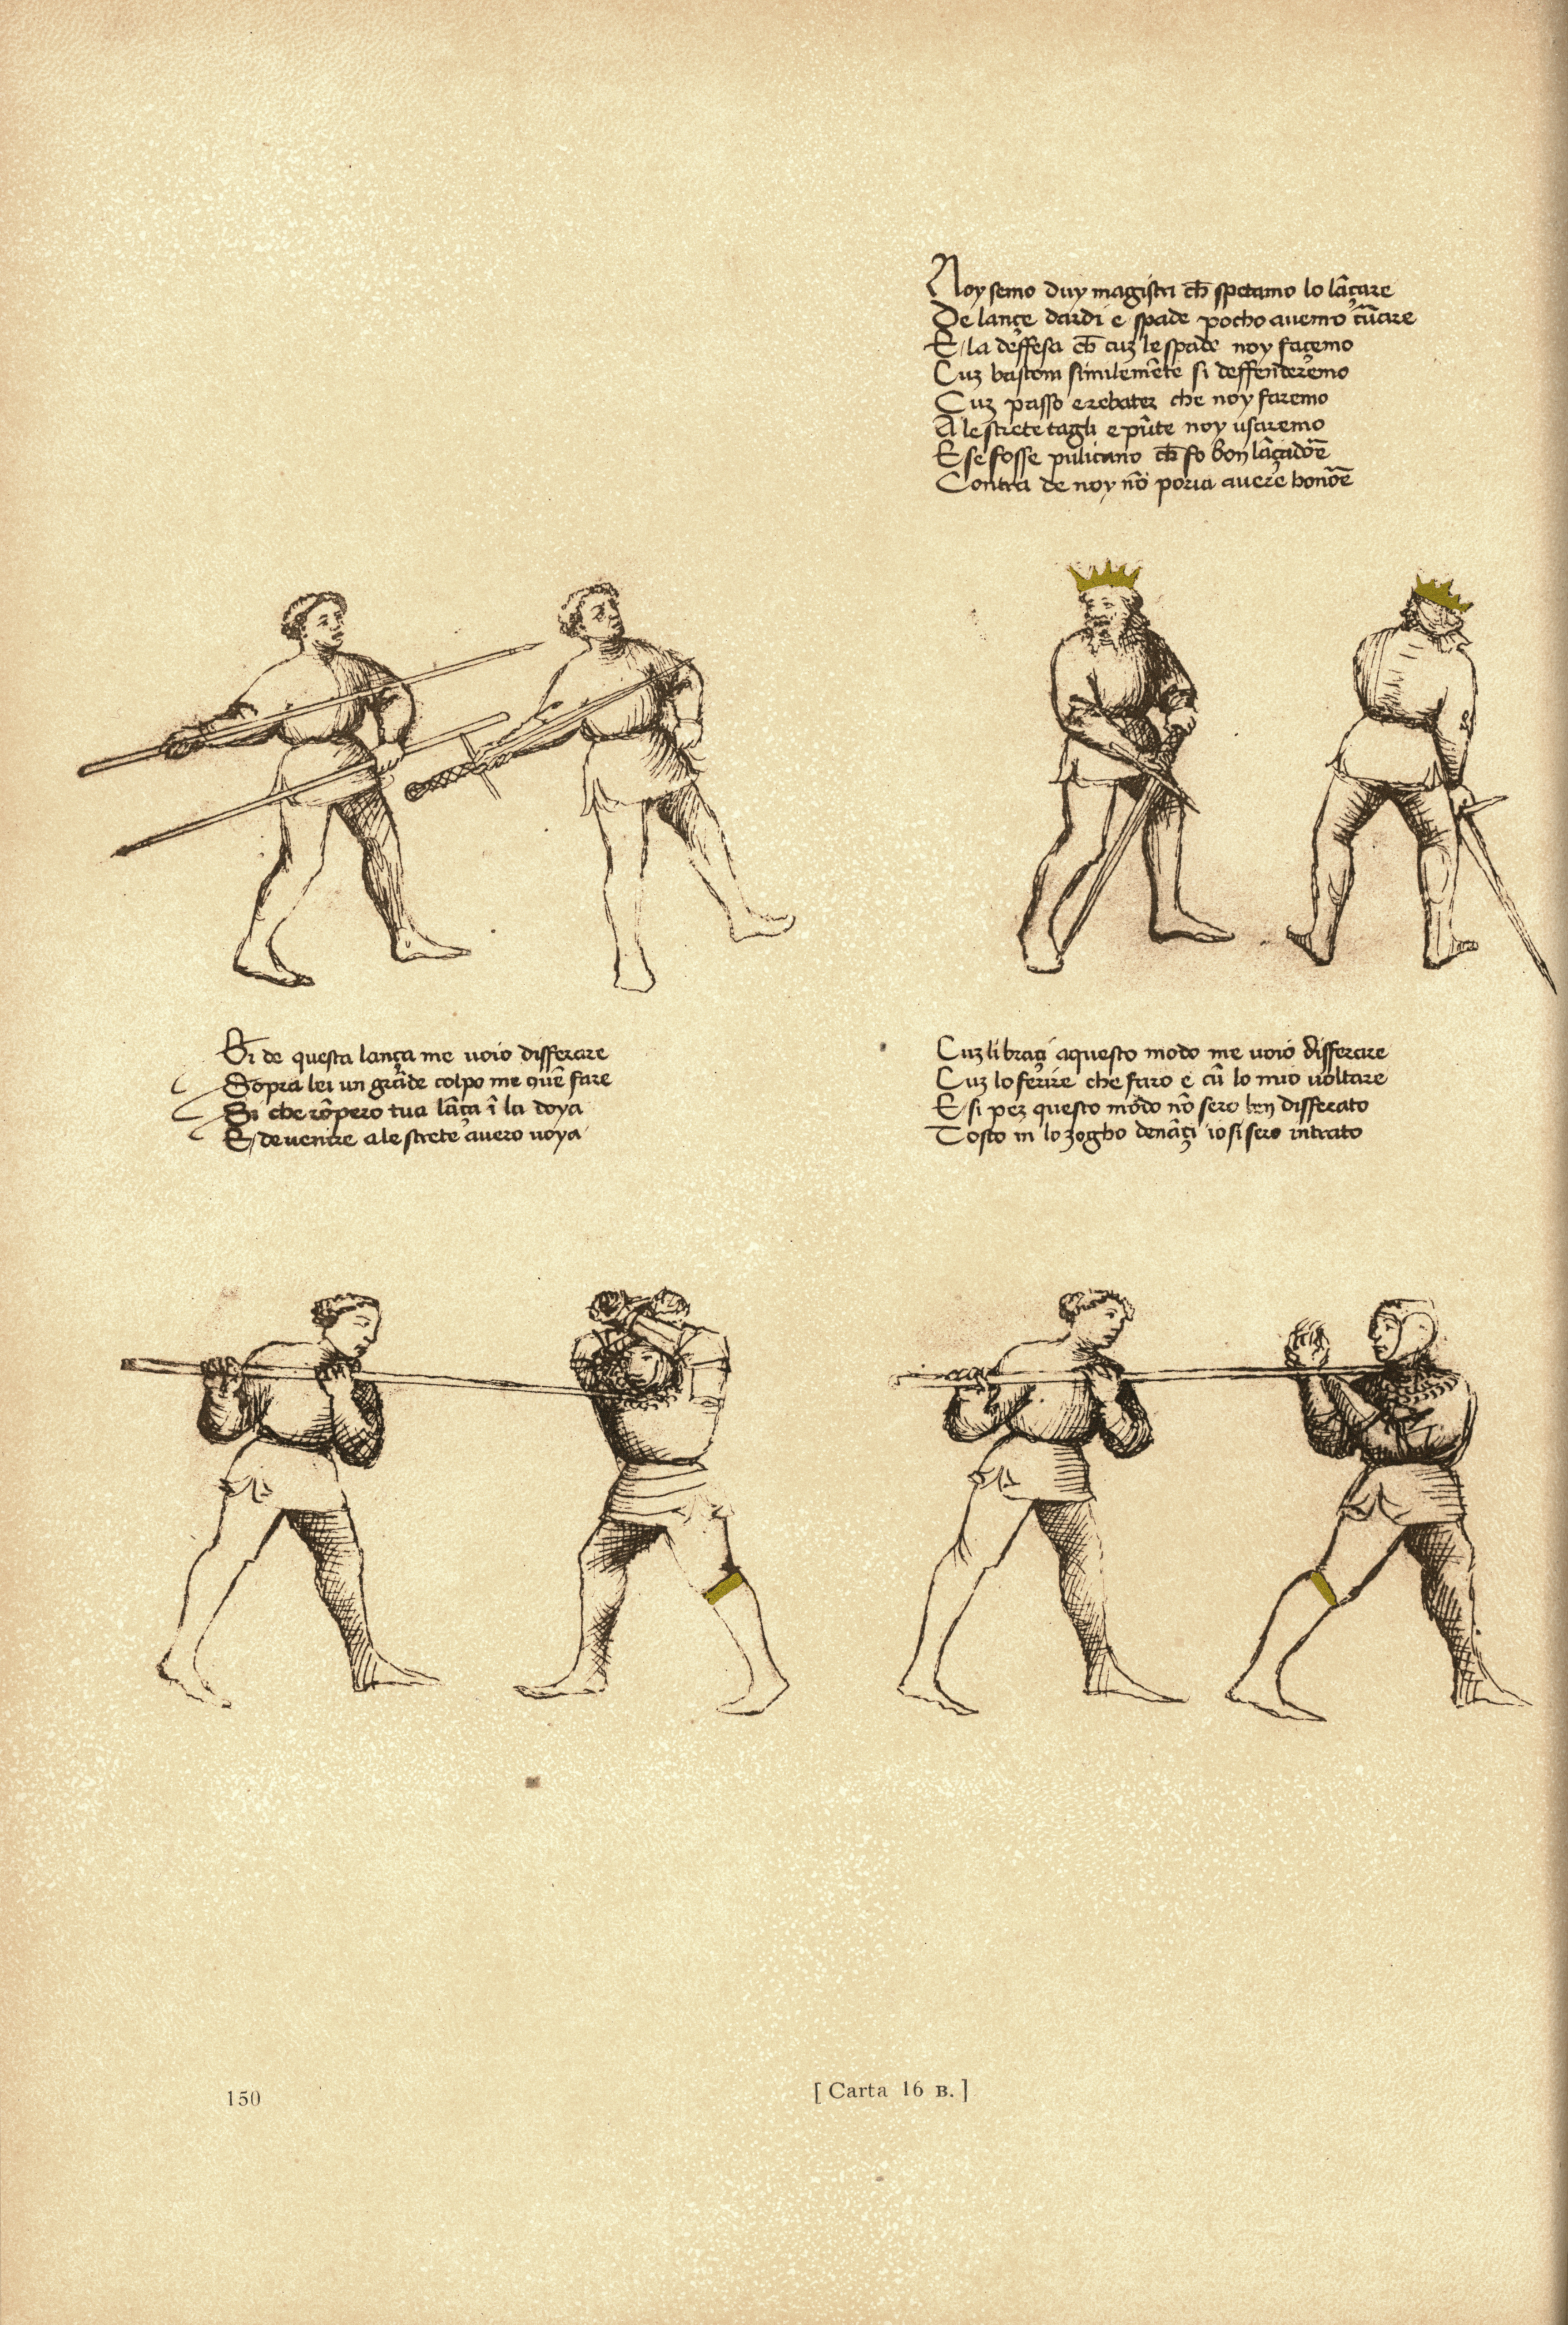 Noy semo duy magistri ch̄ spetamo lo lâçare
De lançe dardi e spade pocho avemo cũare
E la deffesa ch̄ cuz le spade noy façemo
Cuz bastoni similemẽte si deffenderemo
Cuz passo e rebater che noy faremo
A le strete tagli e pũte noy usaremo
E se fosse pulicano ch̄ fo bon lâçadoẽ
Contra de noy nõ poria avere honoẽ
Si de questa lança me voio differare
Sopra lei un grãde colpo me quẽ fare
Si che rõpero tua lãça ĩ la doya
E de venire a le strete avero voya
Cuz li braçi a questo modo me voio differare
Cuz lo ferire che faro e cũ lo mio voltare
E si per questo modo nõ sero ben differato
Tosto in lo zogho denãçi io si sero intrato
150
[ Carta 16 B. ]